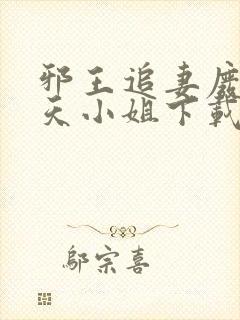 邪王追妻廢
天小姐下載
鄔宗喜